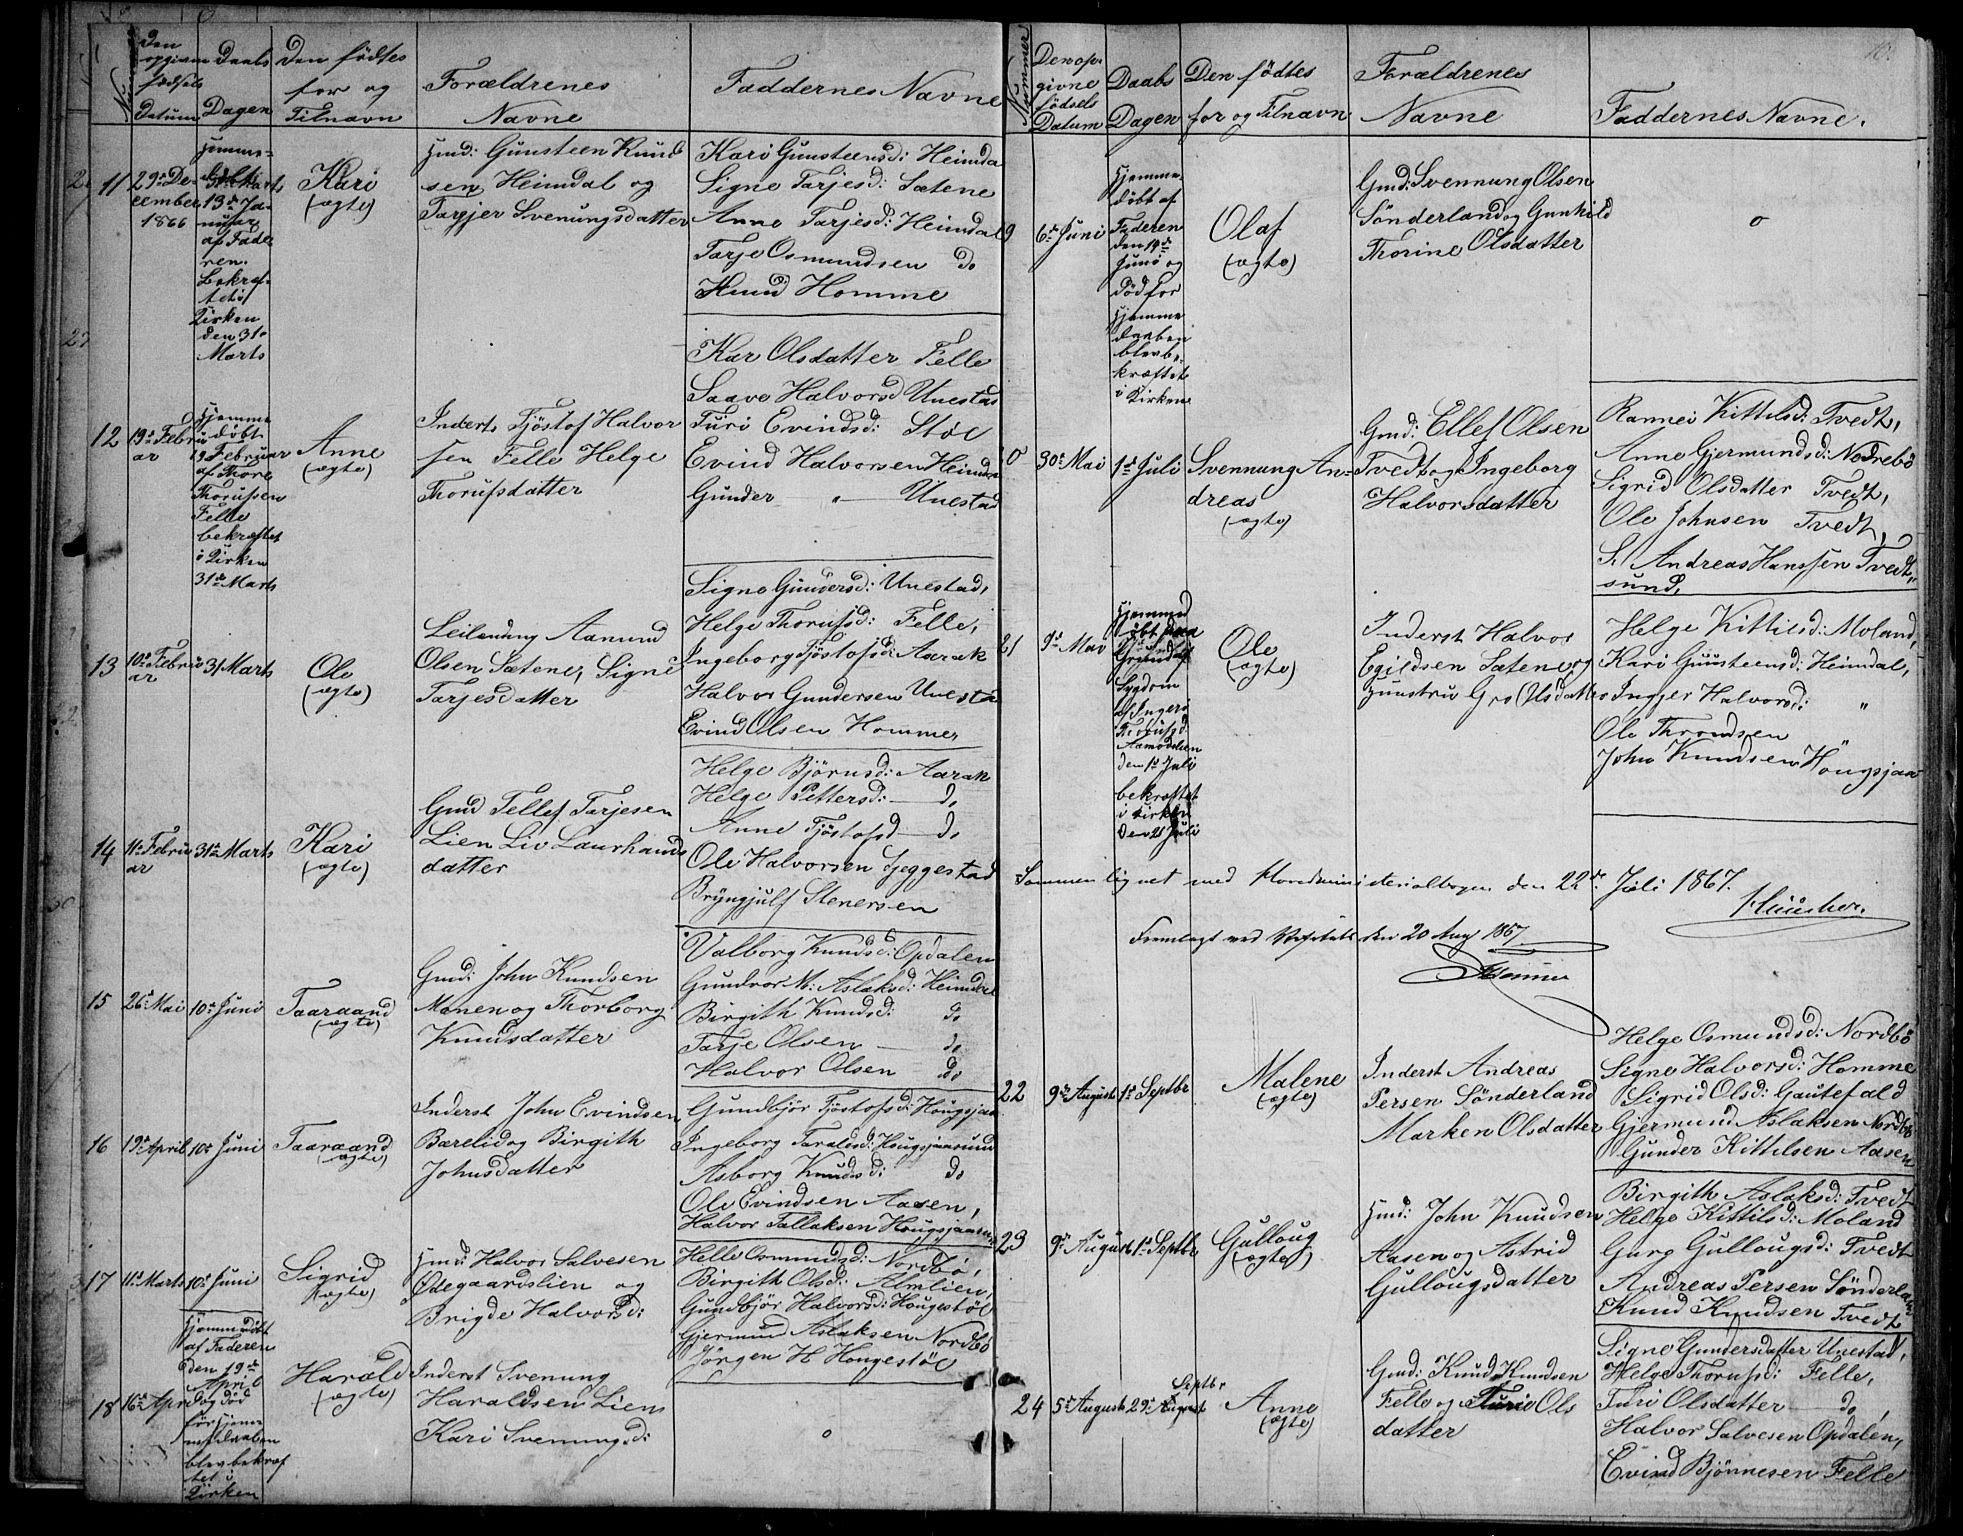 Den
opgivne
fødsels
Datum
Daabs
Dagen
Den fødtes
for og
Tilnavn
Forældrenes
Navne
Faddernes Navne
11
29de De-
cember
1866
Hjemme-
13de Ja-
nuar
af Fade
ren.
Bekræf-
tet i
Kirken
den 31te
Marts
Kari
(ægte)
Gmd: Gunsteen Knud
sen Heimdal og
Targjer Svenungsdatter
Kari Gunsteensd: Heimda
Signe Tarjesd: Sætene
Anne Tarjesd: Heimdal
Tarje Osmundsen do
Knud Homme
12
19de Febru
ar
Hjemme
døbt
19 Februar
af Thore
Thorufsen
Felle
bekræftet
i Kirken
31te Marts
Anne
(ægte)
Inderst Tjøstof Halvor
sen Felle Helge
Thorufsdatter
Kar Olsdatter Felle
Saave Halvorsd Unestad
Turi Evindsd: Støl
Evind Halvorsen Heimdal
Gunder " Unestad
13
10de Febru
ar
31 Marts
Ole
(ægte)
Leilending Aamund
Olsen Sætene, Signe
Tarjesdatter
Signe Gundersd: Unestad,
Helge Thorufsd: Felle,
Ingeborg Tjøstofsd: Aarak
Halvor Gundersen Unesta
Evind Olsen Hommer
14
11te Febru
ar
31te Marts
Kari
(ægte)
Gmd Tellef Tarjesen
Lien Liv Laurhands
datter
Helge Bjørnsd: Aarak
Helge Pettersd: do
Anne Tjøstofsd do
Ole Halvorsen Gjeggestad
Bryngjulf Stenersen
15
26de Mai
10de Juni
Taaraand
(ægte)
Gmd: John Knudsen
Monen og Thorborg
Knudsdatter
Valborg Knudsd: Opdalen
Gundvor M. Aslaksd: Heimdal
Birgith Knudsd: do
Tarje Olsen do
Halvor Olsen do
16
19de April
10de Juni
Taaraand
(ægte)
Inderst John Evindsen
Bærelid og Birgith
Johnsdatter
Gundbjør Tjøstofsd: Hougsjaa
Ingeborg Taralsd: Hougsjaasund
Asborg Knudsd: do
Ole Evindsen Aasen,
Halvor Tallaksen Hougsjaasund
17
11te Marts
10de Juni
Sigrid
(ægte)
Hmd: Halvor Salvesen
Ødegaardslien og
Brigde Halvorsd:
Helle Osmundsd: Nordbø,
Birgith Olsd: Almlien,
Gundbjør Halvorsd: Hougestøl
Gjermund Aslaksen Nordbø
Jørgen H Hougestøl
18
16de April
Hjemmedøbt
af Faderen
den 19de
April
og død
før Hjem-
medaaben
blev bekræf
tet i
Kirken
Harald
(ægte)
Inderst Svenung
Haraldsen Lien
Kari Svenungsd:
o
Nummer
Den op-
givne
fødsels
Datum
Daabs
Dagen
Den fødtes
for og Tilnavn
Forældrenes
Navne
Faddernes Navne.
9
6te Juni
Hjemme-
døbt af
Faderen
den 14de
Juni og
død før
Hjemme
daaben
blev be-
kræftet
i Kirken
Olaf
(ægte)
Gmd: Svennung Olsen
Sønderland og Gunhild
Thorine Olsdatter
o
0
30te Mai
1ste Juli
Svennung An-
dreas
(ægte)
Gmd: Ellef Olsen
Tvedt og Ingeborg
Halvorsdatter
Rannei Kittilsd: Tvedt,
Anne Gjermundsd: Nedrebø
Sigrid Olsdatter Tvedt,
Ole Johnsen Tvedt,
S. Andreas Hanssen Tvedt-
sund.
21
9de Mai
Hjemmed
døbt paa
Grund af
Sygdom
af Ingers
Aamodslien
den 1ste Juli
bekræftet
i Kirken
den 21 Juli
Ole
(ægte)
Inderst Halvor
Egildsen Sætene og
Hunstru Gro Olsdatter
Helge Kittilsd: Moland,
Kari Gunsteensd: Heimdal,
Ingjer Halvorsd: "
Ole Throndsen "
John Knudsen Hougsjaa
Sammenlignet med Hovedministerialbogen den 22de Juli 1867.
Fremlagt ved Visitats den 20 Aug 1867.
22
9de August
1ste Septbr
Malene
(ægte)
Inderst Andreas
Persen Sønderland
Marken Olsdatter
Helge Osmundsd: Nordbø
Signe Halvorsd: Homme
Sigrid Olsd: Gautefald
Gjermund Aslaksen Nordbø
Gunder Kittilsen Aasen
23
9de August
1ste Septbr
Gulloug
(ægte)
Hmd: John Knudsen
Aasen og Astrid
Gullougsdatter
Birgith Aslaksd: Tvedt
Helge Kittilsd: Moland
Gurg Gullougsd: Tvedt
Andreas Persen Sønderland
Knud Knudsen Tvedt
24
5te August
29de Septbr
Anne
(ægte)
Gmd: Knud Knudsen
Felle og Turi Ols
datter
Signe Gundersdatter Unestad,
Helge Thorufsd: Felle,
Turi Olsdatter do,
Halvor Salvesen Opdalen,
Evind Bjønnesen Felle